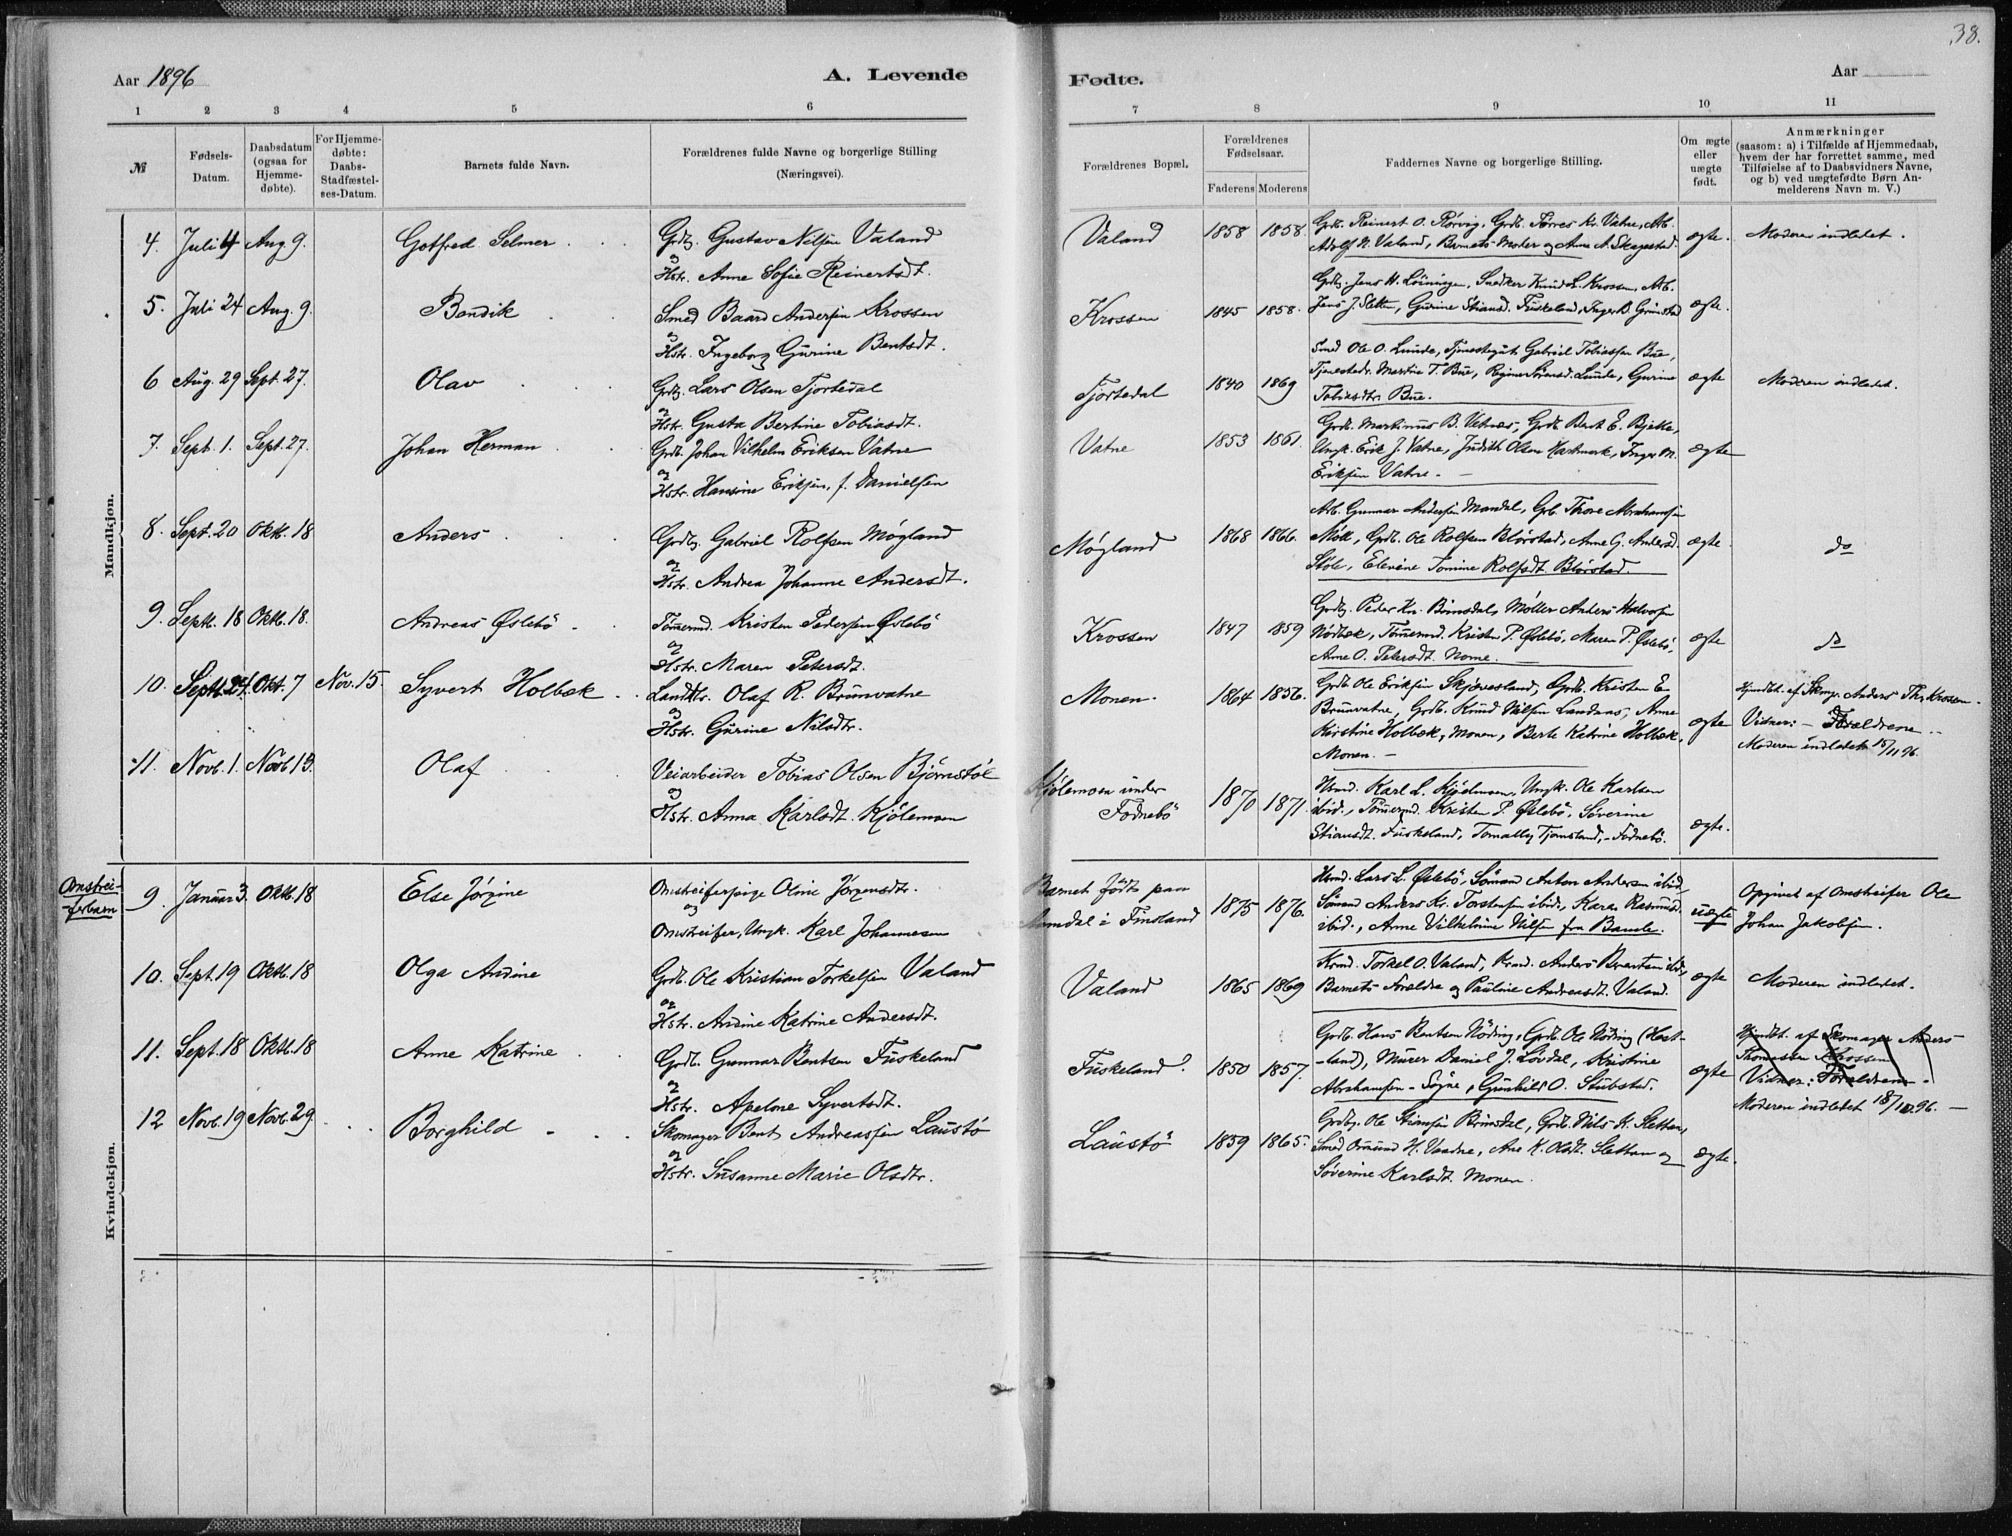 38.
Aar 1896
A. Levende
Fødte.
Aar
1 2 3 4 5 6
7 8 9 10 11
№
Fødsels-
Datum.
Daabsdatum
(ogsaa for
Hjemme-
døbte).
For Hjemme-
døbte:
Daabs-
Stadfæstel-
ses-Datum.
Barnets fulde Navn.
Forældrenes fulde Navne og borgerlige Stilling
(Næringsvei).
Forældrenes Bopæl.
Forældrenes
Fødselsaar.
Faderens Moderens
Faddernes Navne og borgerlige Stilling.
Om ægte
eller
uægte
født.
Anmærkninger
(saasom: a) i Tilfælde af Hjemmedaab,
hvem der har forrettet samme, med
Tilføielse af to Daabsvidners Navne,
og b) ved uægtefødte Børn An-
melderens Navn m. V.)
Mandkjøn.
4. Juli 4 Aug 9. Gotfred Selmer
Grdb. Gustav Nilsen Valand
og
Hstr. Anne Sofie Reinertsdt.
Valand 1858 1858.
Grdb. Reinert O. Rörvig, Grdb. Torres Kr. Vatne, Arb.
Adolf N. Valand, Barnets Moder og Ane A. Skagestad.
ægte. Moderen indledet.
5. Juli 24 Aug. 9. Bendik
Smed Baard Andersen Krossen
og
Hstr. Ingeborg Gurine Bentsdt.
Krossen 1845 1858.
Grdb. Jens H. Löiningen, Snedker Knud L. Krossen, Arb.
Jens J. Sletten, Gurine Stiansd. Fuskeland, Inger B. Grimstad
ægte.
6 Aug. 29 Sept. 27. Olav
Grdb. Lars Olsen Tjortedal
og
Hstr. Gusta Bertine Tobiasdt.
Tjortedal 1840 1869
Smed Ole O. Lunde, Tjenestegut Gabriel Tobiassen Bue,
Tjenestedr. Martin T. Bue, Regine Sörensd. Lunde, Gurine
Tobiasdtr. Bue.
ægte Moderen indledet.
7. Sept. 1. Sept. 27. Johan Herman
Grdb. Johan Vilhelm Eriksen Vatne
og
Hstr. Hansine Eriksen, f. Danielsen
Vatne 1853 1861.
Grdb. Markinus B. Vetnæs, Grdb. Bent E. Bjelke,
Ungk. Erik J. Vatne, Judith Olsen Hartmark, Inger M.
Eriksen Vatne. —
ægte
8. Sept. 20 Oktb. 18 Anders
Grdb. Gabriel Rolfsen Møgland
og
Hstr. Andrea Johanne Andersdt.
Møgland 1868 1866.
Arb. Gunnar Andersen Mandal, Grb. Thore Abrahamsen
Möll, Grdb. Ole Rolfsen Blörstad, Anne G. Andersd.
Stöle, Elevine Tomine Rolfsdt. Blörstad.
ægte. do
9. Septb. 18 Oktb. 18. Andreas Øslebö
Tömermd. Kristen Pedersen Øslebö
og
Hstr. Maren Petersdt.
Krossen 1847 1859
Grdb. Peder Kr. Brinsdal, Møller Anders Halvorsen
Nödbæk, Tömermd. Kristen P. Øslebö, Maren P. Øslebö,
Anne O. Petersdt. Nome. —
ægte do
10. Septb. 24. Okt. 7 Nov. 15. Syvert Holbæk
Landhdlr. Olaf R. Brunvatne
og
Hstr. Gurine Nilsdtr.
Monen. 1864 1856.
Grdb. Ole Eriksen Skjævesland, Grdb. Kristen E.
Brunvatne, Grdb. Knud Nilsen Landaas, Anne
Kirstine Holbæk, Monen, Berte Katrine Holbæk,
Monen. —
ægte
Hjmdbt. af Skmgr. Anders Ths. Krossen.
Vidner: — Forældrene
Moderen indledet 15/11 96.
11. Novb. 1. Novb 13. Olaf
Veiarbeider Tobias Olsen Bjørnstøl
og
Hstr. Anna Karlsdt. Kjölemoen
Kjölemoen under
Fodnebö 1870 1871.
Hsmd. Karl L. Kjöelmoen, Ungk. Ole Karlsen
ibid., Tömermd. Kristen P. Øslebö, Söverine
Stiansdt. Fuskeland, Tomally Tjomsland, - Fodnebö.
ægte.
Kvindekjøn.
Omstrei-
ferbarn
9. Januar 3. Oktb. 18 Else Jörgine
Omstreiferpige Oline Jörgensdtr.
og
Omstreifer, Ungk. Karl Johannesen
Barnet født paa
Aamdal i Finsland 1875 1876.
Hsmd. Lars L. Øslebö, Sömand Anton Andersen ibid.,
Sömand Anders Kr. Torstensen ibid., Karen Rasmusd.
ibid., Anne Vilhelmine Nilsen fra Bamle.
uægte
Opgivet af Omstreifer Ole
Johan Jakobsen.
10. Sept. 19 Oktb. 18 Olga Andine
Grdb. Ole Kristian Torkelsen Valand
og
Hstr. Andine Katrine Andersdt.
Valand 1865 1869
Krmd. Torkel O. Valand, Krmd. Anders Braaten ibid.,
Barnets Forældre og Pauline Andreasdt. Valand.
ægte Moderen indledet.
11. Sept. 18 Oktb. 18 Anne Katrine
Grdb. Gunnar Bentsen Fuskeland
og
Hstr. Apelone Syvertsdt.
Fuskeland. 1850 1857.
Grdb. Hans Bentsen Nöding, Grdb. Ole Nöding (Høst-
land), Murer Daniel J. Lövdal, Kristine
Abrahamsen - Søgne, Gunhild O. Stubstad.
ægte
Hjmdbt. af Skomager Anders
Thomassen Krossen
Vidner: Forældrene.
Moderen indledet 18/10 96. —
12 Novb. 19 Novb. 29. Borghild
Skomager Bent Andreassen Laustö
og
Hstr. Susanne Marie Olsdtr.
Laustö 1859 1865.
Grdb. Ole Stiansen Brinsdal, Grdb. Nils K. Sletten,
Smed Omund H. Vandne, Ane K. Olsdt. Sletten og
Söverine Karlsdt. Monen.
ægte.